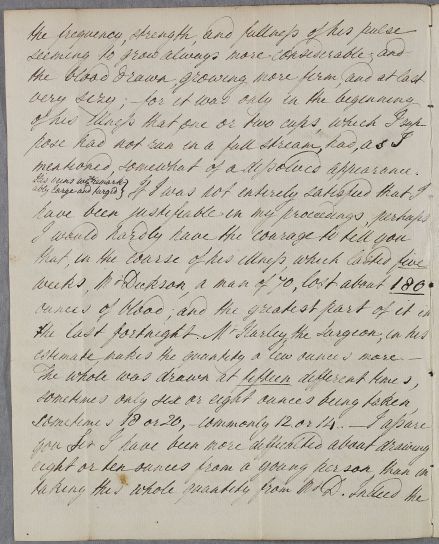 the frequency, strength and fullness of his pulse
seeming to grow always more considerable; and
the blood drawn growing more firm and at last
very sizy; – for it was only in the beginning
of his illness that one or two cups, which I sup-
pose had not run in a full stream, had, as I
mentioned, somewhat of a dissolved appearance.
His veins were remark
ably large and turgid
If I was not entirely satisfied that I
have been justifiable in my proceedings, perhaps
I would hardly have the courage to tell you
that, in the course of his illness which lasted five
weeks, Mr a man of 70, lost about 180
ounces of blood; and the greatest part of it in
the last fortnight. Mr the Surgeon, in his
estimate, makes the quantity a few ounces more –
The whole was drawn at fifteen different times,
sometimes only six or eight ounces being taken,
sometimes 18 or 20, – commonly 12 or 14. – I assure
you Sir I have been more difficulted about drawing
eight or ten ounces from a young person than in
taking this whole quantity from Mr D. Indeed the